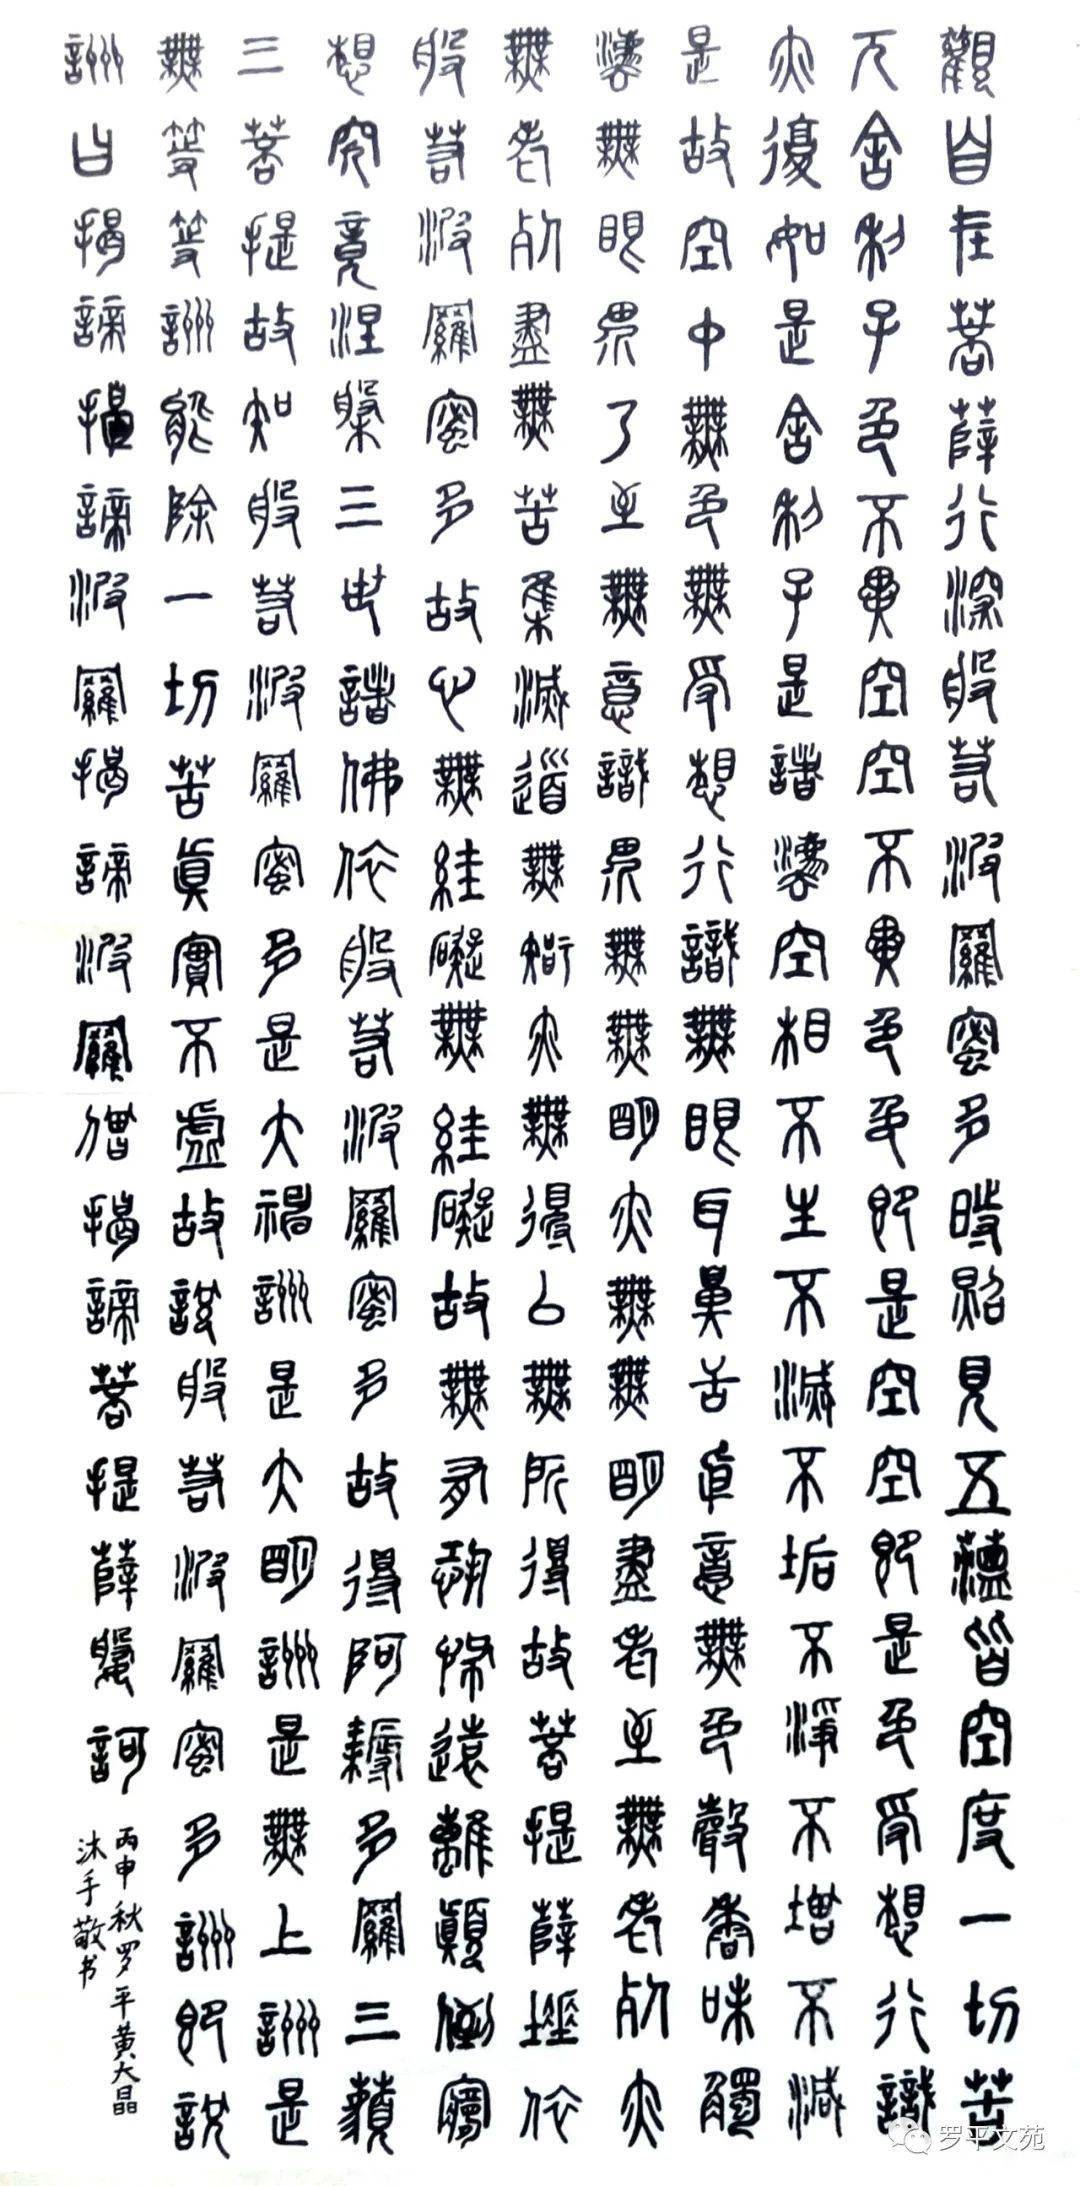 觀自在菩薩行深般若波羅蜜多時照見五蘊皆空度一切苦
厄舍利子色不異空空不異色色即是空空即是色受想行識
亦復如是舍利子是諸灋空相不生不滅不垢不淨不增不減
是故空中無色無受想行識無眼耳鼻舌身意無色聲香味觸
灋無眼界乃至無意識界無無明亦無無明盡乃至無老死亦
無老死盡無苦集滅道無智亦無得以無所得故菩提薩埵依
般若波羅蜜多故心無絓礙無絓礙故無有恐怖遠離顛倒夢
想究竟涅槃三世諸佛依般若波羅蜜多故得阿耨多羅三藐
三菩提故知般若波羅蜜多是大神詶是大明詶是無上詶是
無等等詶能除一切苦真實不虛故說般若波羅蜜多詶即說
詶曰揭諦揭諦波羅揭諦波羅僧揭諦菩提薩婆訶
丙申秋罗平黄大晶
沐手敬书
罗平文苑